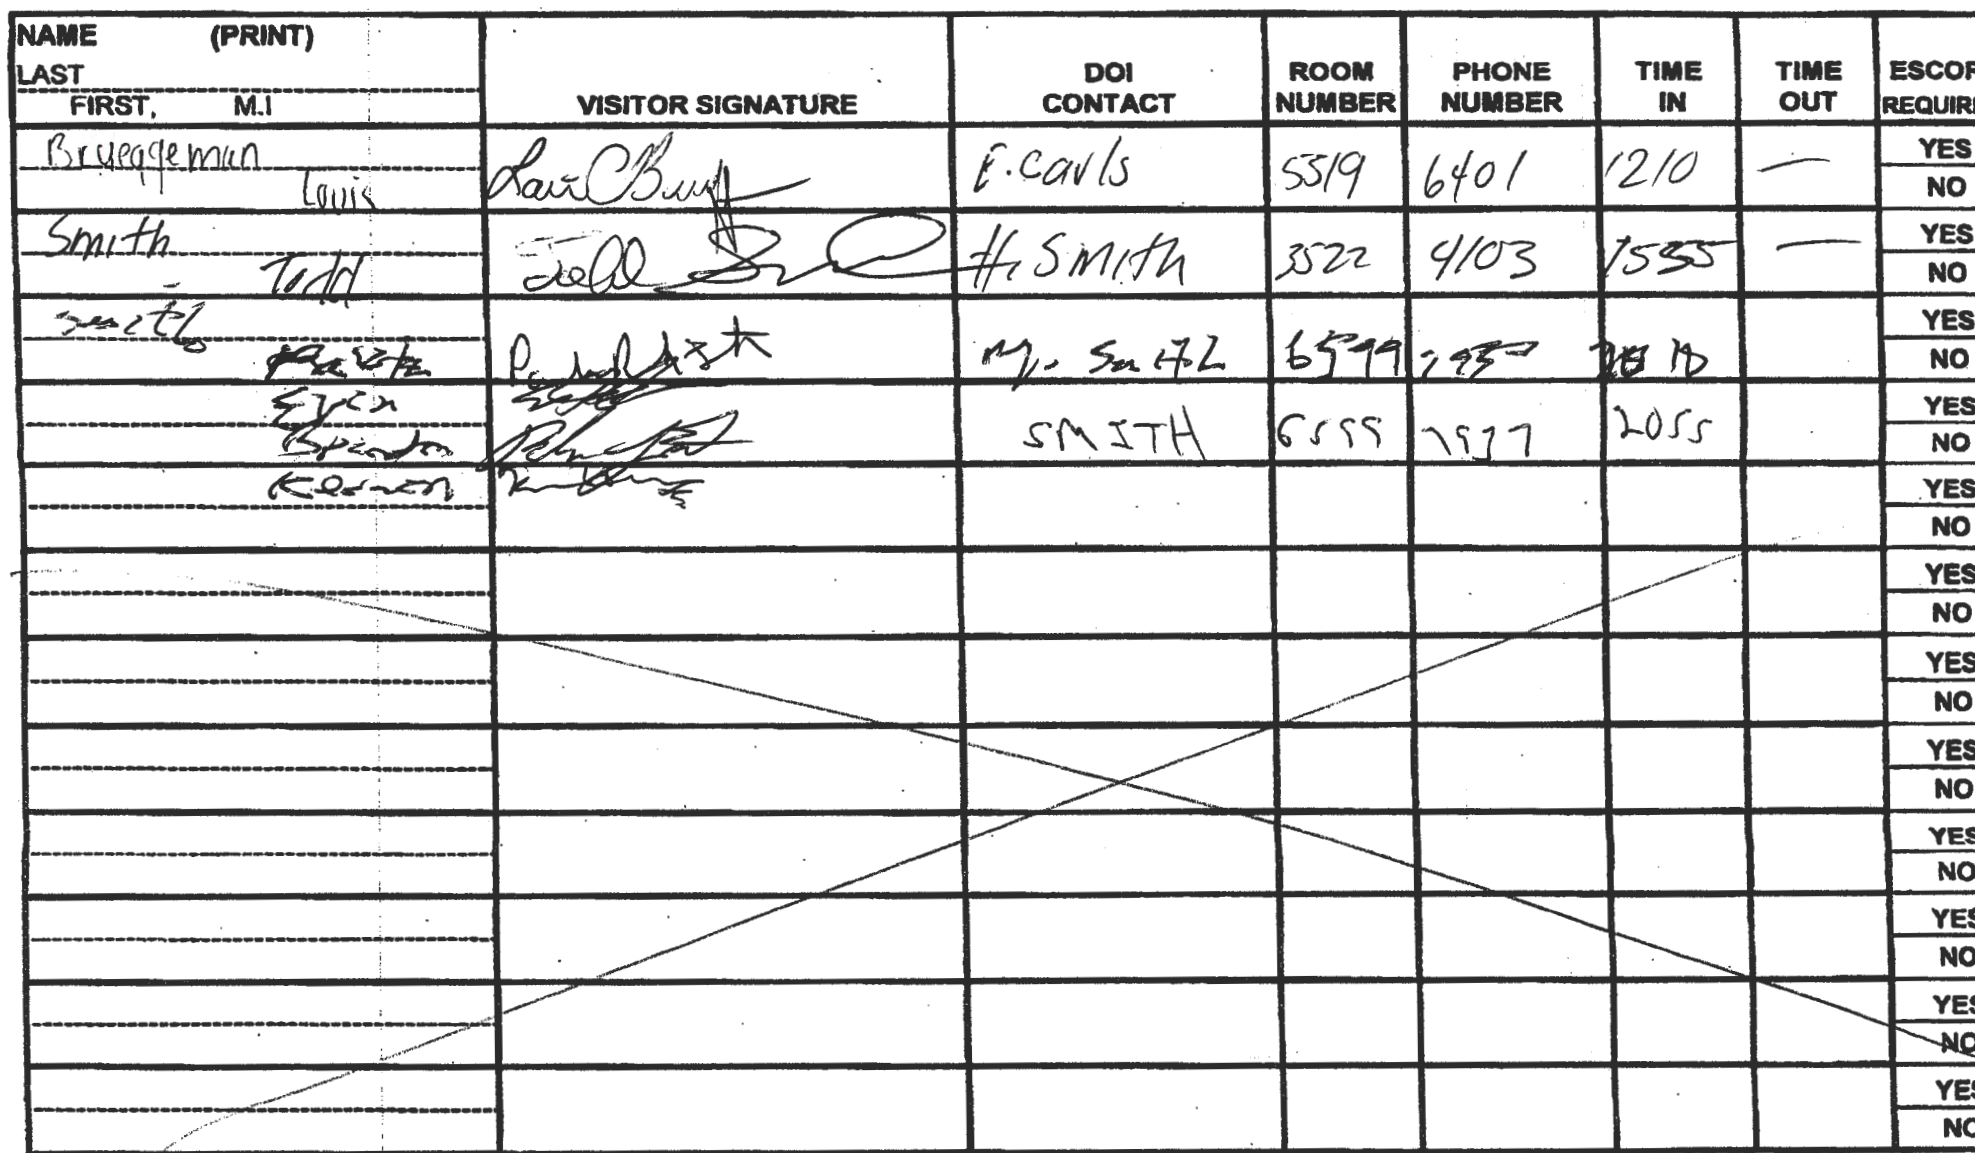 NAME (PRINT)
LAST
FIRST, M.I
VISITOR SIGNATURE
DOI CONTACT
ROOM NUMBER
PHONE NUMBER
TIME IN
TIME OUT
ESCOR REQUIRE
Brueggeman
Louis E. Carls 5519 6401 1210 — YES NO
Smith
Todd H. Smith 3522 4103 1535 — YES NO
Smith
M. Smith 6599 YES NO
Brandon SMITH 6599 7937 2055 YES NO
YES NO
YES NO
YES NO
YES NO
YES NO
YES NO
YES NO
YES NO